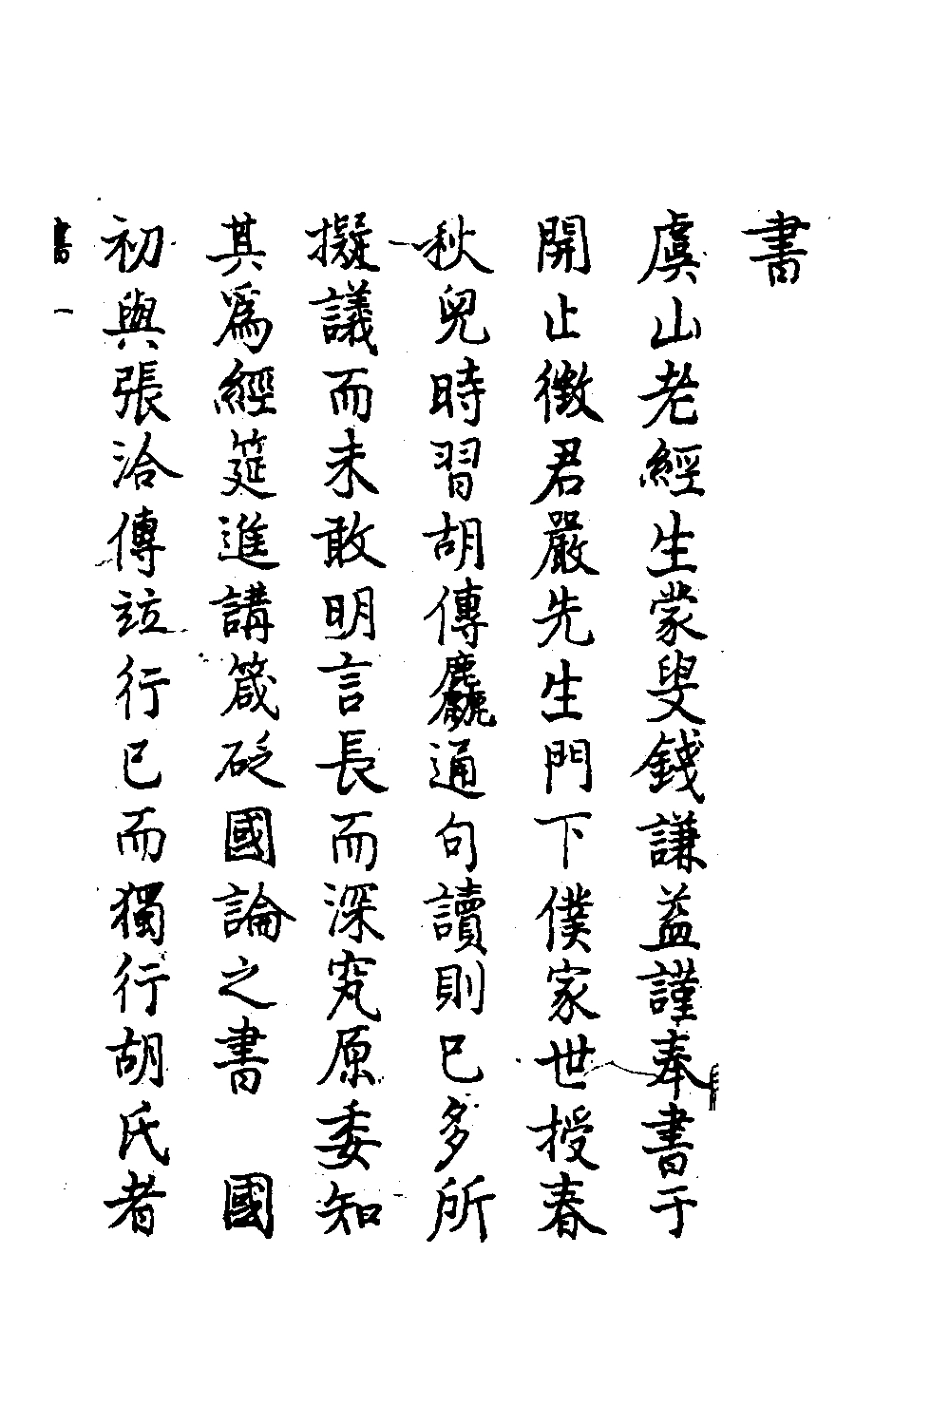 書
虞山老經生蒙叟錢謙益謹奉書于
開止徵君嚴先生門下僕家世授春
秋兒時習胡傳麤通句讀則已多所
擬議而未敢明言長而深究原委知
其爲經筵進講箴砭國論之書　國
初與張洽傳竝行已而獨行胡氏者
書　一